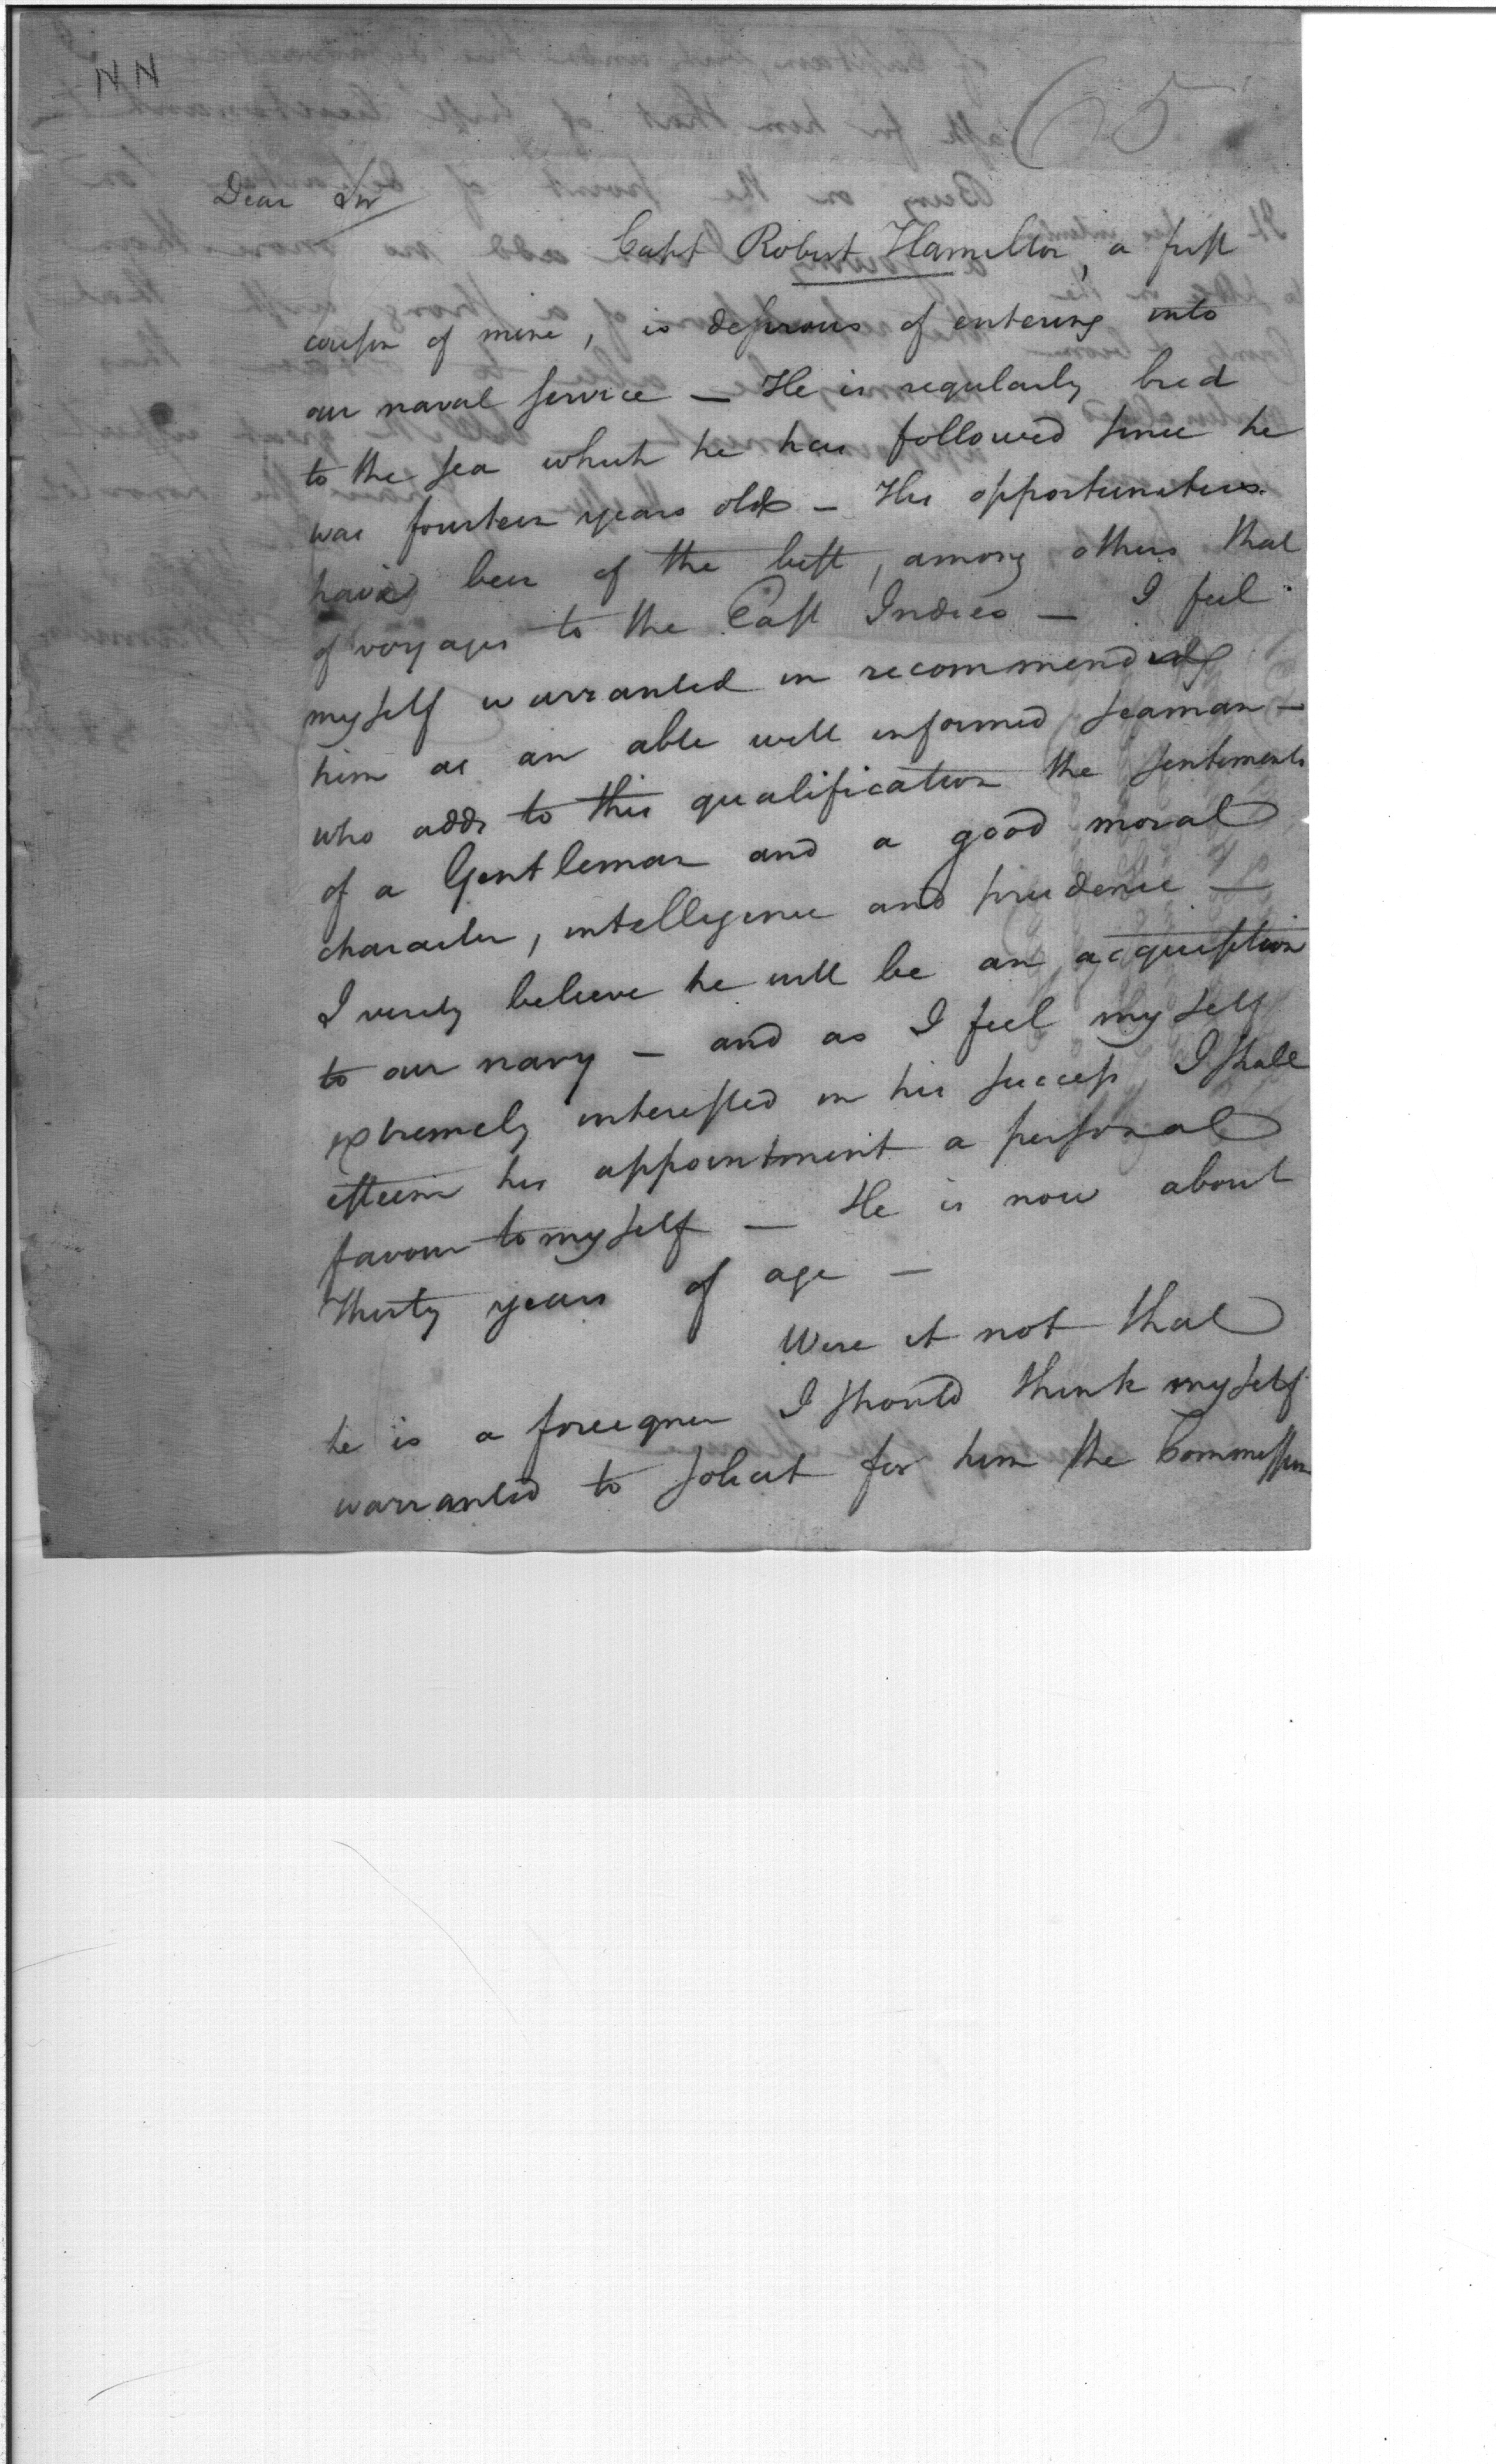 NN
Dear Sir
Capt Robert Hamilton, a first
cousin of mine, is desirous of entering into
our naval service — He is regularly bred
to the sea which he has followed since he
was fourteen years old — His opportunities
have been of the best, among others that
of voyages to the East Indies — I feel
myself warranted in recommending
him as an able well informed seaman —
who adds to this qualification the sentiments
of a Gentleman and a good moral
character, intelligence and prudence —
I verily believe he will be an acquisition
to our navy — and as I feel myself
extremely interested in his success, I shall
esteem his appointment a personal
favour to myself — He is now about
Thirty years of age —
Were it not that
he is a foreigner I should think myself
warranted to solicit for him the Commission